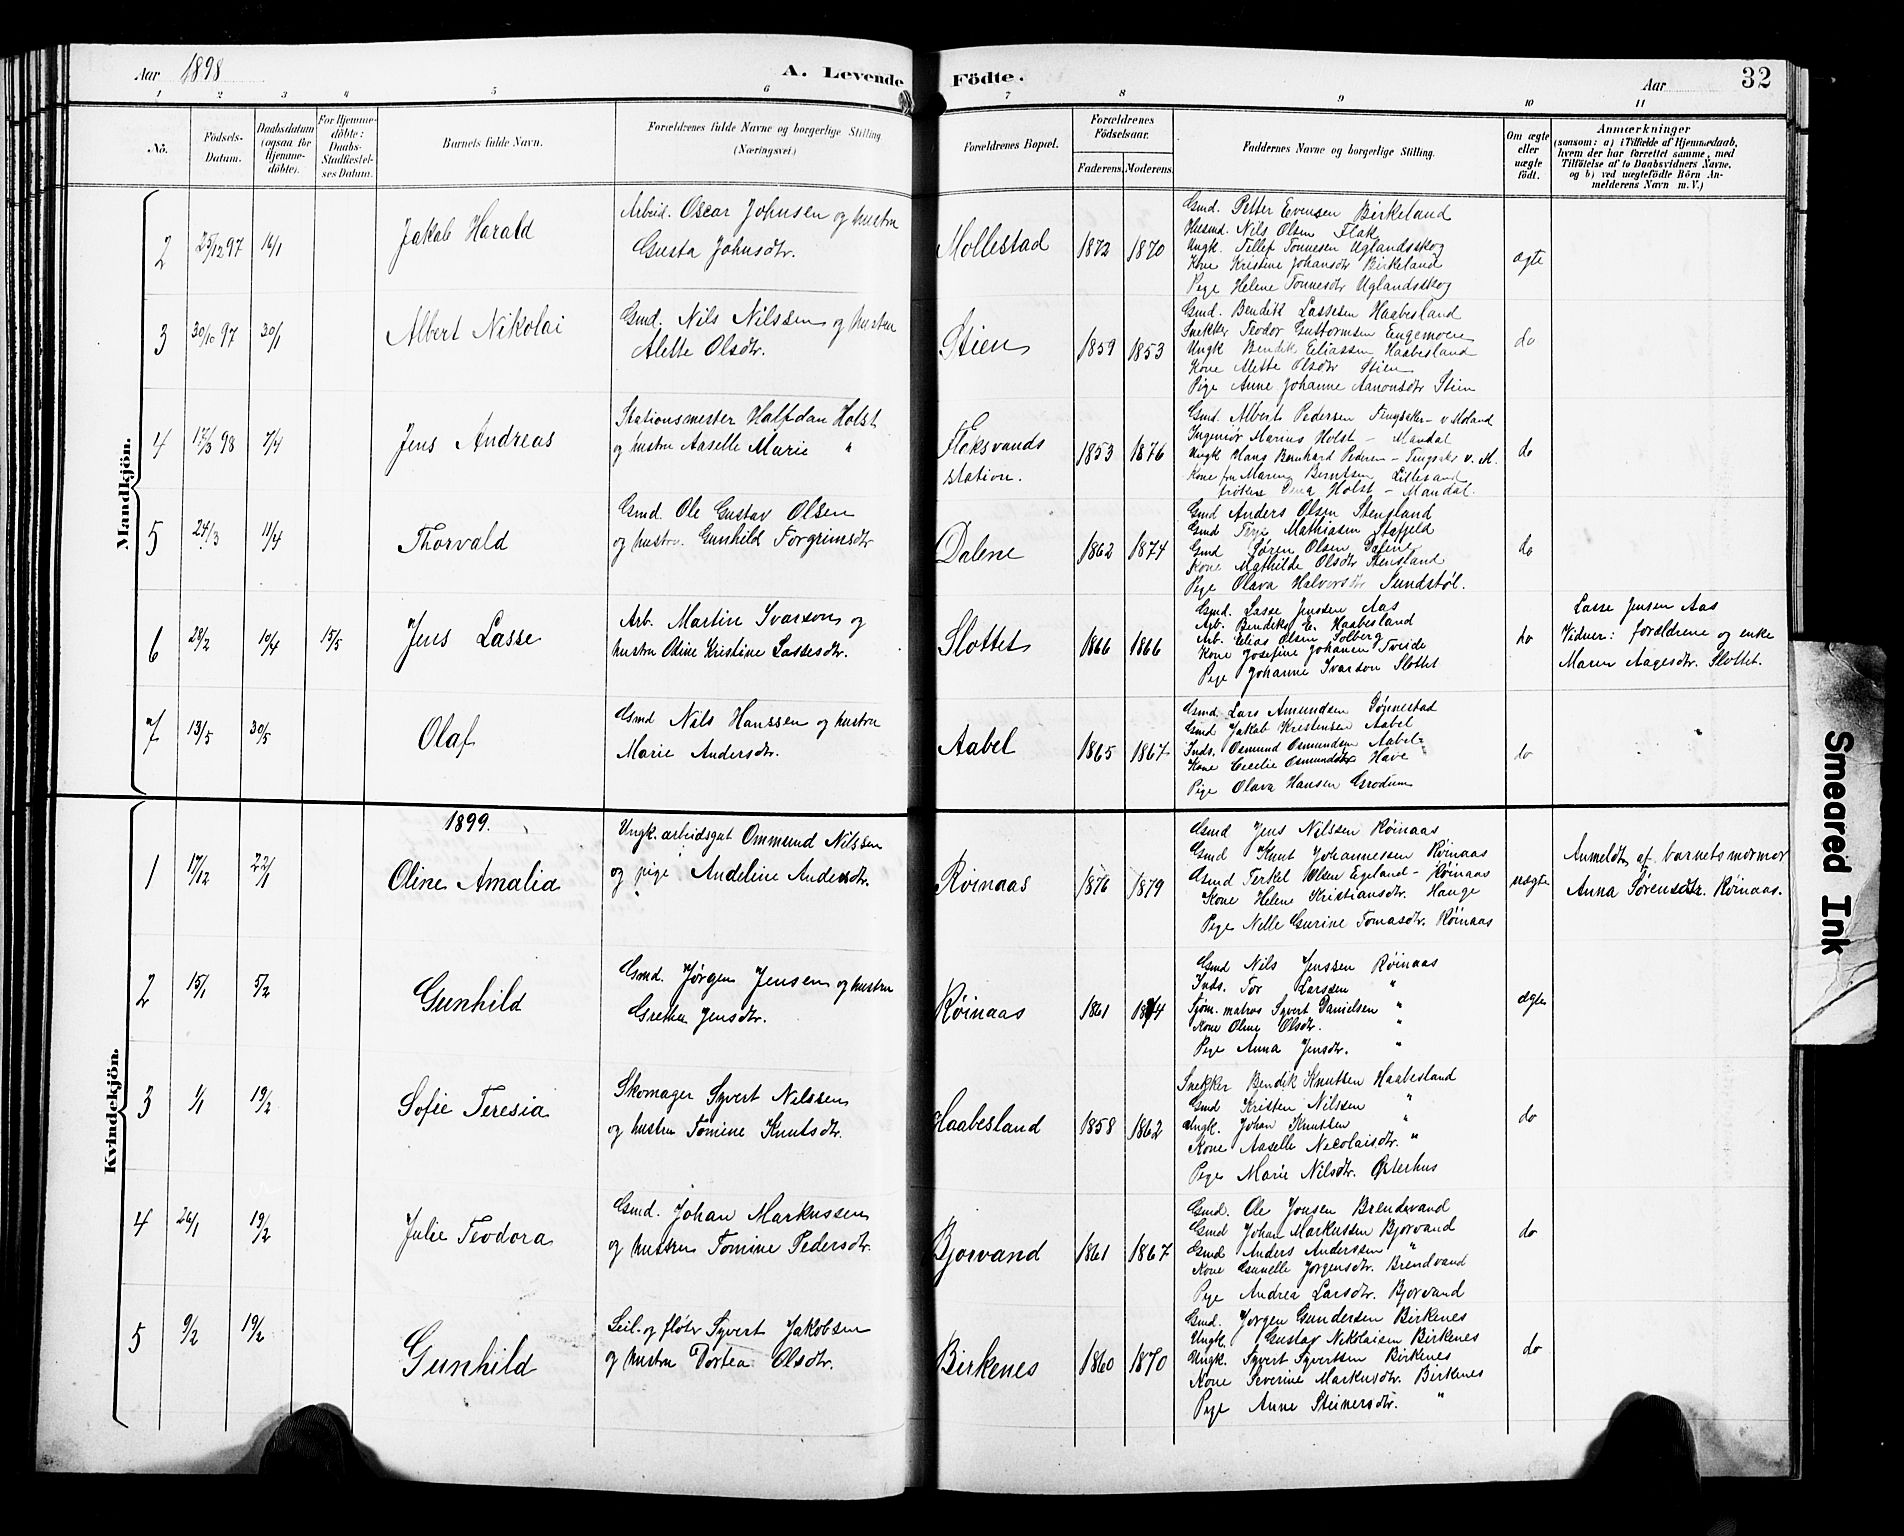 Aar 1898
A. Levende Födte.
Aar
32
1 2 3 4 5 6 7 8 9 10 11
No.
Födsels-Datum.
Daabsdatum (ogsaa for Hjemmedöbte).
For Hjemmedöbte: Daabs-Stadfæstelses Datum.
Barnets fulde Navn.
Forældrenes fulde Navne og borgerlige Stilling (Næringsvei.)
Forældrenes Bopæl.
Forældrenes Födselsaar.
Faderens. Moderens.
Faddernes Navne og borgerlige Stilling.
Om ægte eller uægte födt.
Anmærkninger
(saasom: a) i Tilfælde af Hjemmedaab, hvem der har forrettet samme, med Tilföielse af to Daabsvidners Navne, og b) ved uægtefödte Börn Anmelderens Navn m. V.)
Mandkjön.
2 25/12 97 16/1
Jakob Harald
Arbeid. Oscar Johnsen og hustru
Gusta Johnsdtr.
Mollestad 1872 1870
Gmd. Petter Evensen Birkeland
Husmd. Nils Olsen Flak
Ungk. Tellef Tonnesen Uglandsskog
Kone Kristine Johansdtr Birkeland
Pige Helene Tonnesdtr Uglandsskog
ægte
3 30/10 97 30/1
Albert Nikolai
Gmd. Nils Nilssen og hustru
Alette Olsdtr.
Stien 1859 1853
Gmd. Bendik Lassesen Haabesland
Snekker Teodor Guttormsen Engemoen
Ungk Bendik Eliassen Haabesland
Kone Alette Olsdtr Stien
Pige Anne Johanne Aanonsdtr Stien
do
4 17/3 98 7/4
Jens Andreas
Stationsmester Halfdan Holst
og hustru Aaselle Marie "
Flaksvands
station.
1853 1876
Gmd. Albert Pedersen v Moland
Ingeniør Marius Holst - Mandal
Ungk Hans Bernhard Pedersen - v. M.
Kone fru Maren Berntsen Lillesand
frøken Holst - Mandal.
do
5 24/3 11/4
Thorvald
Gmd. Ole Gustav Olsen
og hustru. Gunhild Torgrimsdtr
Dalene 1862 1874
Gmd Anders Olsen Stensland
Gmd Terje Mathiasen
Gmd Søren Olsen Dalene
Kone Mathilde Olsdtr Stensland
Pige Olava Halvorsdtr Sundstøl.
do
6 28/2 10/4 15/5
Jens Lasse
Arb. Martin Ivarson og
hustru Oline Kristine Lassesdtr.
Slottet 1866 1866
Gmd. Lasse Jensen Aas
Arb. Bendiks E. Haabesland
Arb. Elias Olsen Solberg
Kone Josefine Johansen Tveide
Pige Johanne Ivarson Slottet
do
Lasse Jensen Aas
Vidner: forældrene og enke
Maren Aagesdtr. Slottet.
7 13/5 30/5
Olaf
Gmd Nils Hanssen og hustru
Marie Andersdtr.
Aabel 1865 1867
Gmd. Lars Amundsen Tønnestad
Gmd Jakob Kristensen Aabel
Inds. Osmund Osmundsen Aabel
Kone Cecilie Osmundsdtr Have
Pige Olava Hansen Grødum
do
Kvindekjön.
1899.
1 17/12 22/1
Oline Amalia
Ungk. arbeidsgut Ommund Nilssen
og pige Andeline Andersdtr.
Røinaas 1876 1879
Gmd Jens Nilssen Røinaas
Gmd Knut Johannessen Røinaas
Gmd Terkel Olsen Egeland - Røinaas
Kone Helene Kristiansdtr. Hauge
Pige Nelle Gurine Tomasdtr. Røinaas
uægte
Anmeldt af barnets mormor
Anna Sørensdtr. Røinaas.
2 15/1 5/2
Gunhild
Gmd. Jørgen Jensen og hustru
Grethe Jensdtr.
Røinaas 1861
Gmd Nils Jenssen Røinaas
Inds. Tor Larssen "
Sjøm. matros Syvert Danielsen "
Kone Oline Olsdtr. "
Pige Anna Jensdtr. "
ægte
3 1/1 19/2
Sofie Teresia
Skomager Syvert Nilssen
og hustru Tomine Knutsdtr.
Haabesland 1858 1862
Snekker Bendik Knutsen Haabesland
Gmd Kristen Nilssen "
Ungk. Johan Knutsen "
Kone Aaselle Nicolaisdtr. "
Pige Marie Nilsdtr. Østerhus
do
4 26/1 19/2
Julie Teodora
Gmd. Johan Markussen
og hustru Tomine Pedersdtr.
Bjorvand 1861 1867
Gmd. Ole Jensen Brendvand
Gmd Johan Markussen Bjorvand
Gmd Anders Anderssen "
Kone Gunelle Jørgensdtr. Brendvand
Pige Andrea Larsdtr. Bjorvand
do
5 9/2 19/2
Gunhild
Seil- og fløter Syvert Jakobsen
og hustru Dortea Olsdtr.
Birkenes 1860 1870
Gmd. Jørgen Gundersen Birkenes
Ungk. Gustav Nikolaisen Birkenes
Ungk. Syvert Syvertsen Birkenes
Kone Severine Markusdtr. Birkenes
Pige Anne Steinersdtr. "
do
Smeared Ink